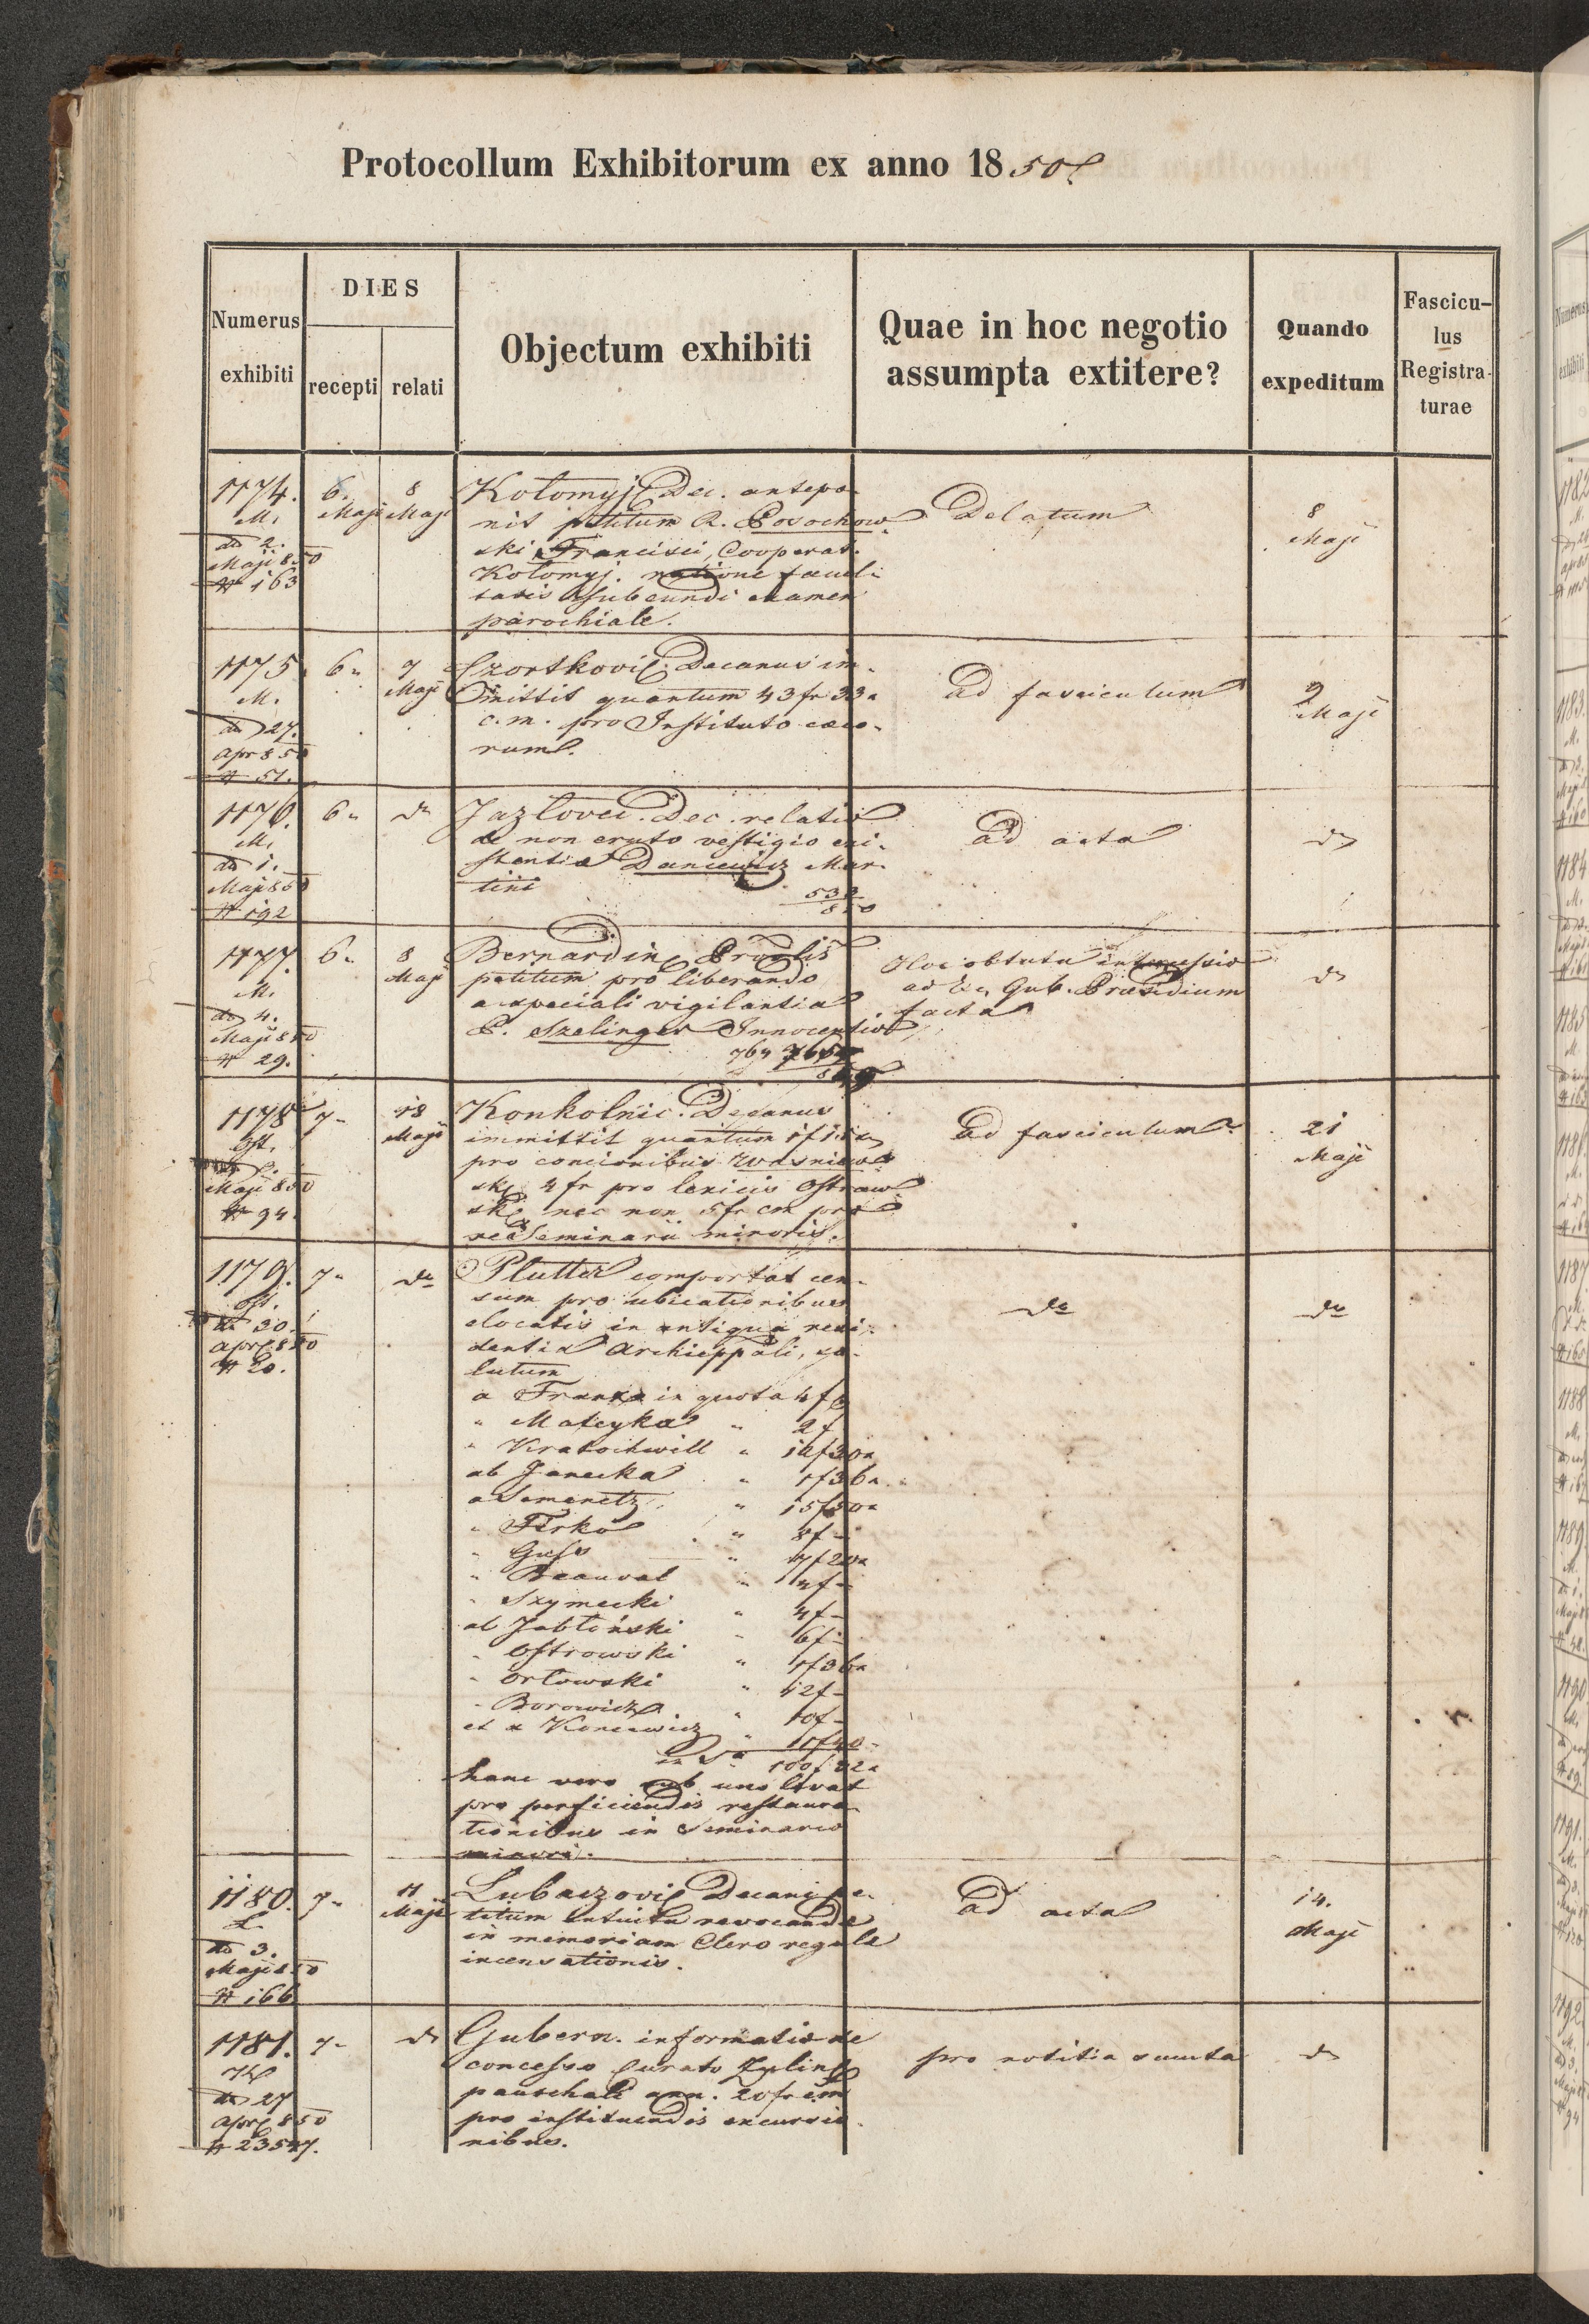 Protocollum Exhibitorum ex anno 1850
Numerus exhibiti
DIES
recepti
relati
Objectum exhibiti
Quae in hoc negotio assumpta extitere?
Quando expeditum
Fascicu-
lus
Registra-
turae
1174.
M.
dto 2.
Maji 850
N 163
6.
Maji
8
Maji
Kołomyj. Dec. antepo-
nit petitum R. Posochow-
ski Francisci, Cooperat.
Kołomyj. ratione facul-
tatis subeundi examen
parochiale.
Delatum
8
Maji
1175
M.
dto 27.
Apr 850
N 51.
6"
7
Maji
Czortkovi. Decanus im-
mittit quantum 43 fr 33
c.m. pro Instituto caeco-
rum.
Ad fasciculum
9
Maji
1176.
M.
dto 1.
Maji 850
N 192
6"
dto
Jazłovec. Dec. relatio
de non eruto vestigio exi-
stentiae Dancewicz Mar-
tini
533
850
Ad acta
dto
1177.
M.
dto 4.
Maji 850
N 29.
6"
8
Maji
Bernardin. Provlis
petitum pro liberando
a speciali vigilantia
P. Szelinger Innocentio
764
849
Hoc obtutu intercessio
ad Exc. Gub. Praesidium
facta
dto
1178
Ost.
Maji 850
N 94.
7"
18
Maji
Konkolnic. Decanus
immittit quantum
pro concionibus
sk. 4 fr pro lexicis Ostraw-
sk. nec non 5 fr cm pro
re Seminarii minoris.
Ad fasciculum
21
Maji
1179.
Ost.
dto 30.
Apr 850
N 20.
7"
dto
Plutter comportat cen-
sum pro ubicationibus
elocatis in antiqua resi-
dentia Archieppali, so-
lutum
a Franka in quota 4 f
" Mateyka " 2 f
" Kratochwill " 12 f 30
ab Janecka " 1 f 36
a Semenetz " 15 f 50
" Firko " 8 f -
" Guss " 17 f 20
" Beauval " 4 f -
" Szymecki " 4 f -
ab Jabłoński " 6 f -
" Ostrowski " 1 f 36
" Orłowski " 12 f -
" Borowicz " 10 f -
et a Koncewicz " 11 f 40
in Sa 100 f 22
hanc vero sub uno levat
pro perficiendis restaura-
tionibus in Seminario
minori.
dto
dto
1180.
L.
dto 3.
Maji 850
N 166
7"
11
Maji
Lubaczovi. Decani pe-
titum intuitu revocandae
in memoriam Clero regulae
incensationis.
Ad acta
14.
Maji
1181.
dto 27
Apr 850
N 23527.
7"
dto
Gubern. informatio de
concesso Curato Zulin.
pauschali ann. 20 fr cm
pro instituendis excursio-
nibus.
pro notitia sumta
dto